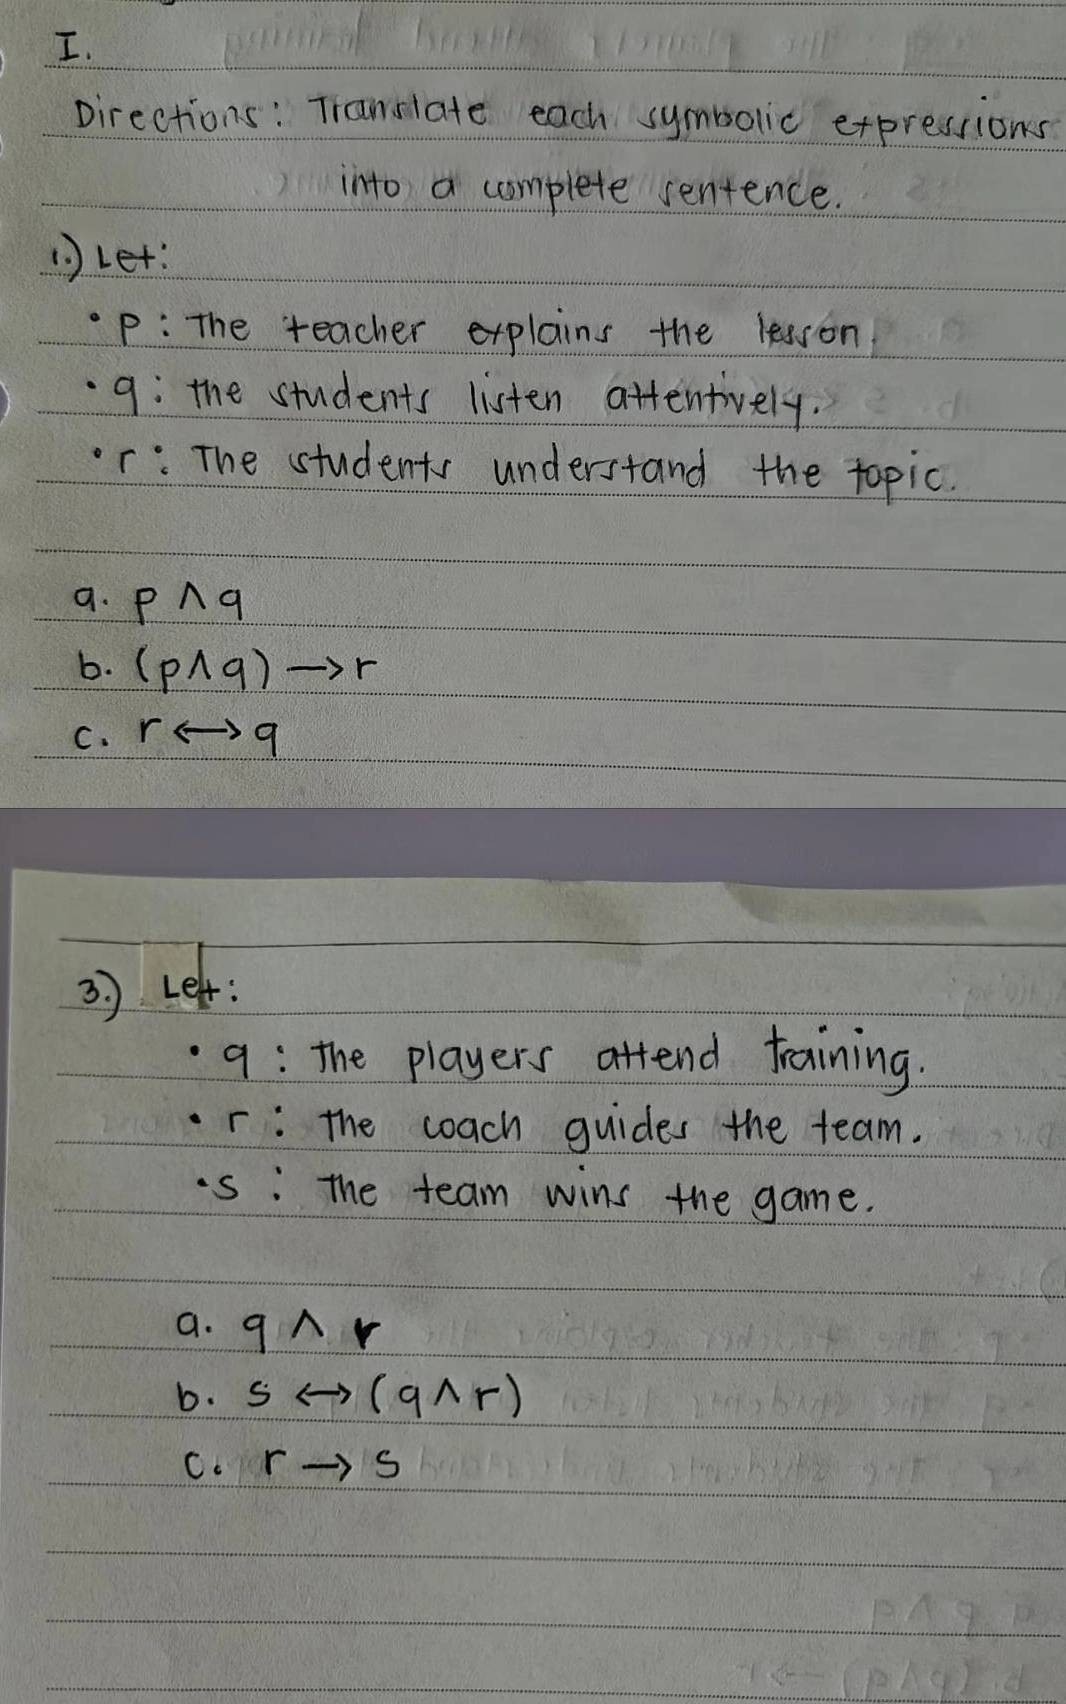 I.
Directions: Translate each symbolic expressions
into a complete sentence.
1.) Let:
• p : The teacher explains the lesson.
• q : the students listen attentively.
• r : The students understand the topic.
a. p ∧ q
b. (p ∧ q) → r
c. r ↔ q
3.) Let:
• q : The players attend training.
• r : The coach guides the team.
• s : The team wins the game.
a. q ∧ r
b. s ↔ (q ∧ r)
c. r → s